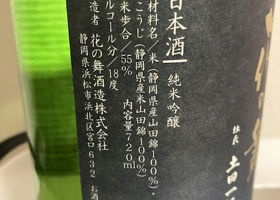 日本酒 純米吟醸
材料名/米(静岡県産山田錦100%)
こうじ(静岡県産米山田錦100%)
米歩合/55% 内容量720ml
ルコール分/18度
造者 花の舞酒造株式会社
静岡県浜松市浜北区宮口632
お酒
杜氏 土田一